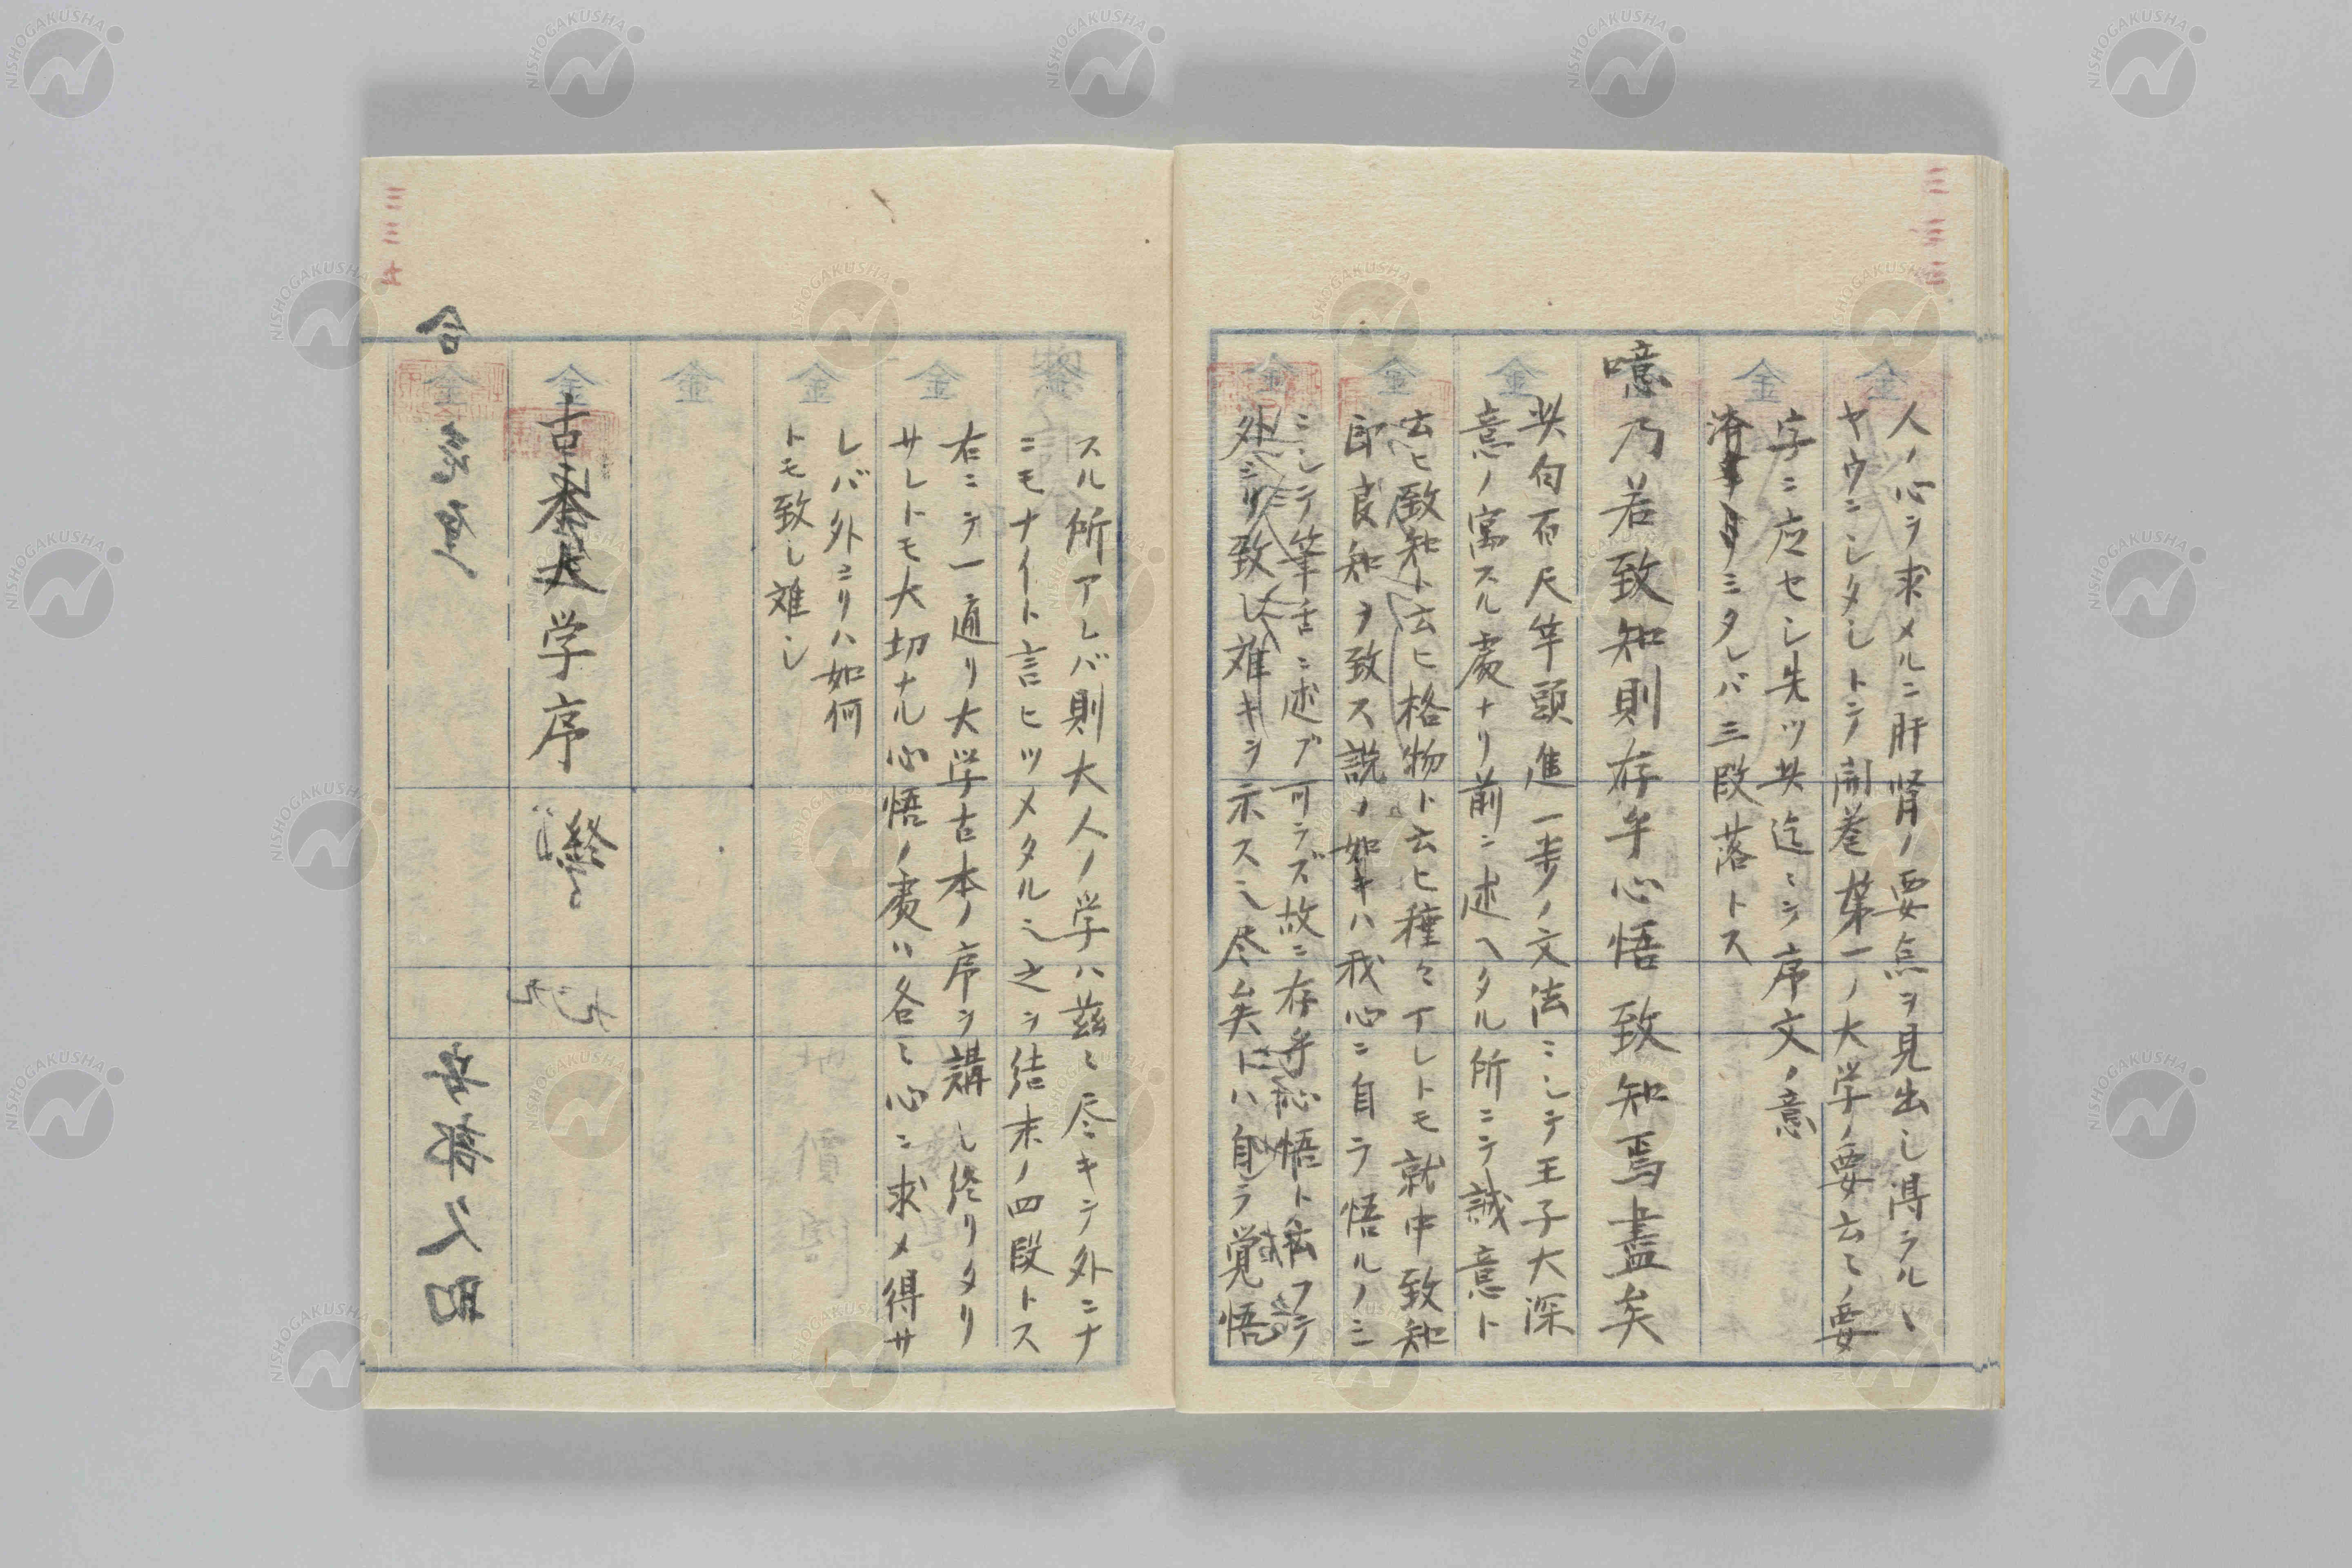 人ノ心ヲ求メルニ肝腎ノ要点ヲ見出し得ラルヽ
ヤウニシタシトテ開巻第一ノ大学ノ要云々ノ要
字ニ応セし先ツ此迄ニテ序文ノ意
済ミタレバ三段落トス
噫乃若致知則存乎心悟致知焉盡矣
此句百尺竿頭進一歩ノ文法ニシテ王子大深
意ノ寓スル處ナリ前ニ述ヘタル所ニテ誠意ト
云ヒ致知ト云ヒ格物ト云ヒ種々アレトモ就中致知
即良知ヲ致ス説ノ如キハ我心ニ自ラ悟ルノミ
ニシテ筆舌ニ述ブ可ラズ故ニ存乎心悟ト云フテ
外ヨリ致し難キヲ示ス 尽矣トハ自ラ覚悟
スル所アレバ則大人ノ学ハ茲ニ尽キテ外ニナ
ニモナイト言ヒツメタル 之ヲ結末ノ四段トス
右ニテ一通リ大学古本ノ序ヲ講し終リタリ
サレトモ大切ナル心悟ノ處ハ各々心ニ求メ得サ
レバ外ヨリハ如何
トモ致し難し
古本大学序
終
三三三
三三七
金
金
金
金
金
金
金
金
金
金
金
NISHOGAKUSHA